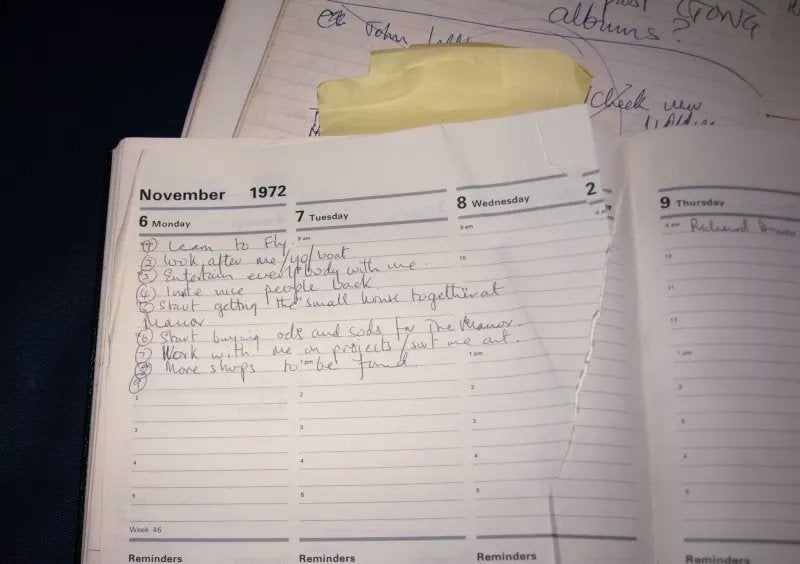 past GONG
albums?
John
Check new
November 1972
6 Monday
7 Tuesday
8 Wednesday 2
9 Thursday
9 am
9 am
9 am Richard
① Learn to Fly.
② Look after me/yo/boat
③ Entertain everybody with me.
④ Invite nice people back.
⑤ Start getting the small house together at
Manor.
⑥ Start buying ods and sods for The Manor.
⑦ Work with me on projects/sort me out.
⑧ More shops to be found.
⑨
10
10
11
12
1 pm
1 pm
1 pm
2
2
2
2
3
3
3
3
4
4
4
4
5
5
5
5
Week 46
Reminders
Reminders
Reminders
Reminders